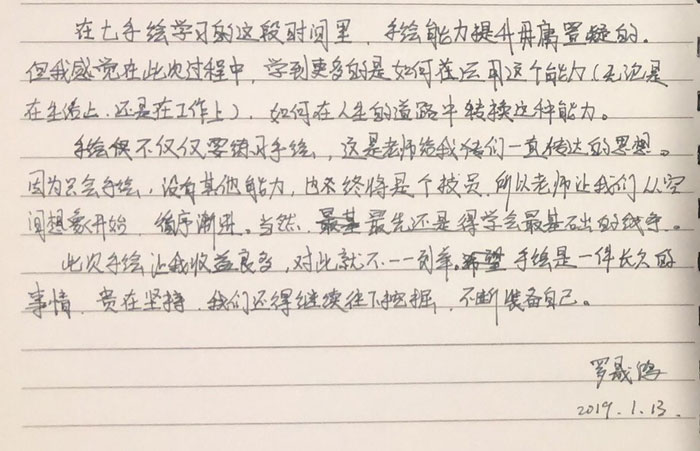 在七手绘学习的这段时间里，手绘能力提升毋庸置疑的。
但我感觉在此次过程中，学到更多的是如何在运用这个能力（无论是
在生活上，还是在工作上），如何在人生的道路中转换这种能力。
手绘从不仅仅要练习手绘，这是老师给我们一直传达的思想。
因为只会手绘，没有其他能力，始终将是个技员，所以老师让我们从空
间想象开始，循序渐进。当然，最先还是得学会最基础的线条。
此次手绘让我收益良多，对此就不一一列举。手绘是一件长久的
事情，贵在坚持，我们还得继续往下挖掘，不断装备自己。
罗晟
2019.1.13.